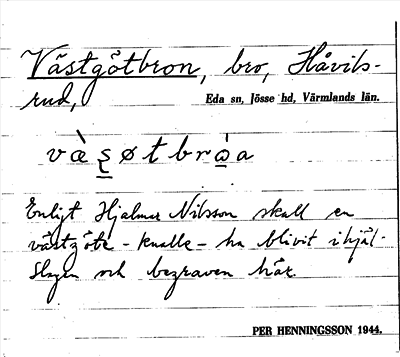 Västgötbron, bro, Håvils-
rud,
Eda sn, Jösse hd, Värmlands län.
væ̀ʂøtbrɷ́a
Enligt Hjalmar Nilsson skall en
västgöte-knalle- ha blivit ihjäl-
slagen och begraven här.
PER HENNINGSSON 1944.